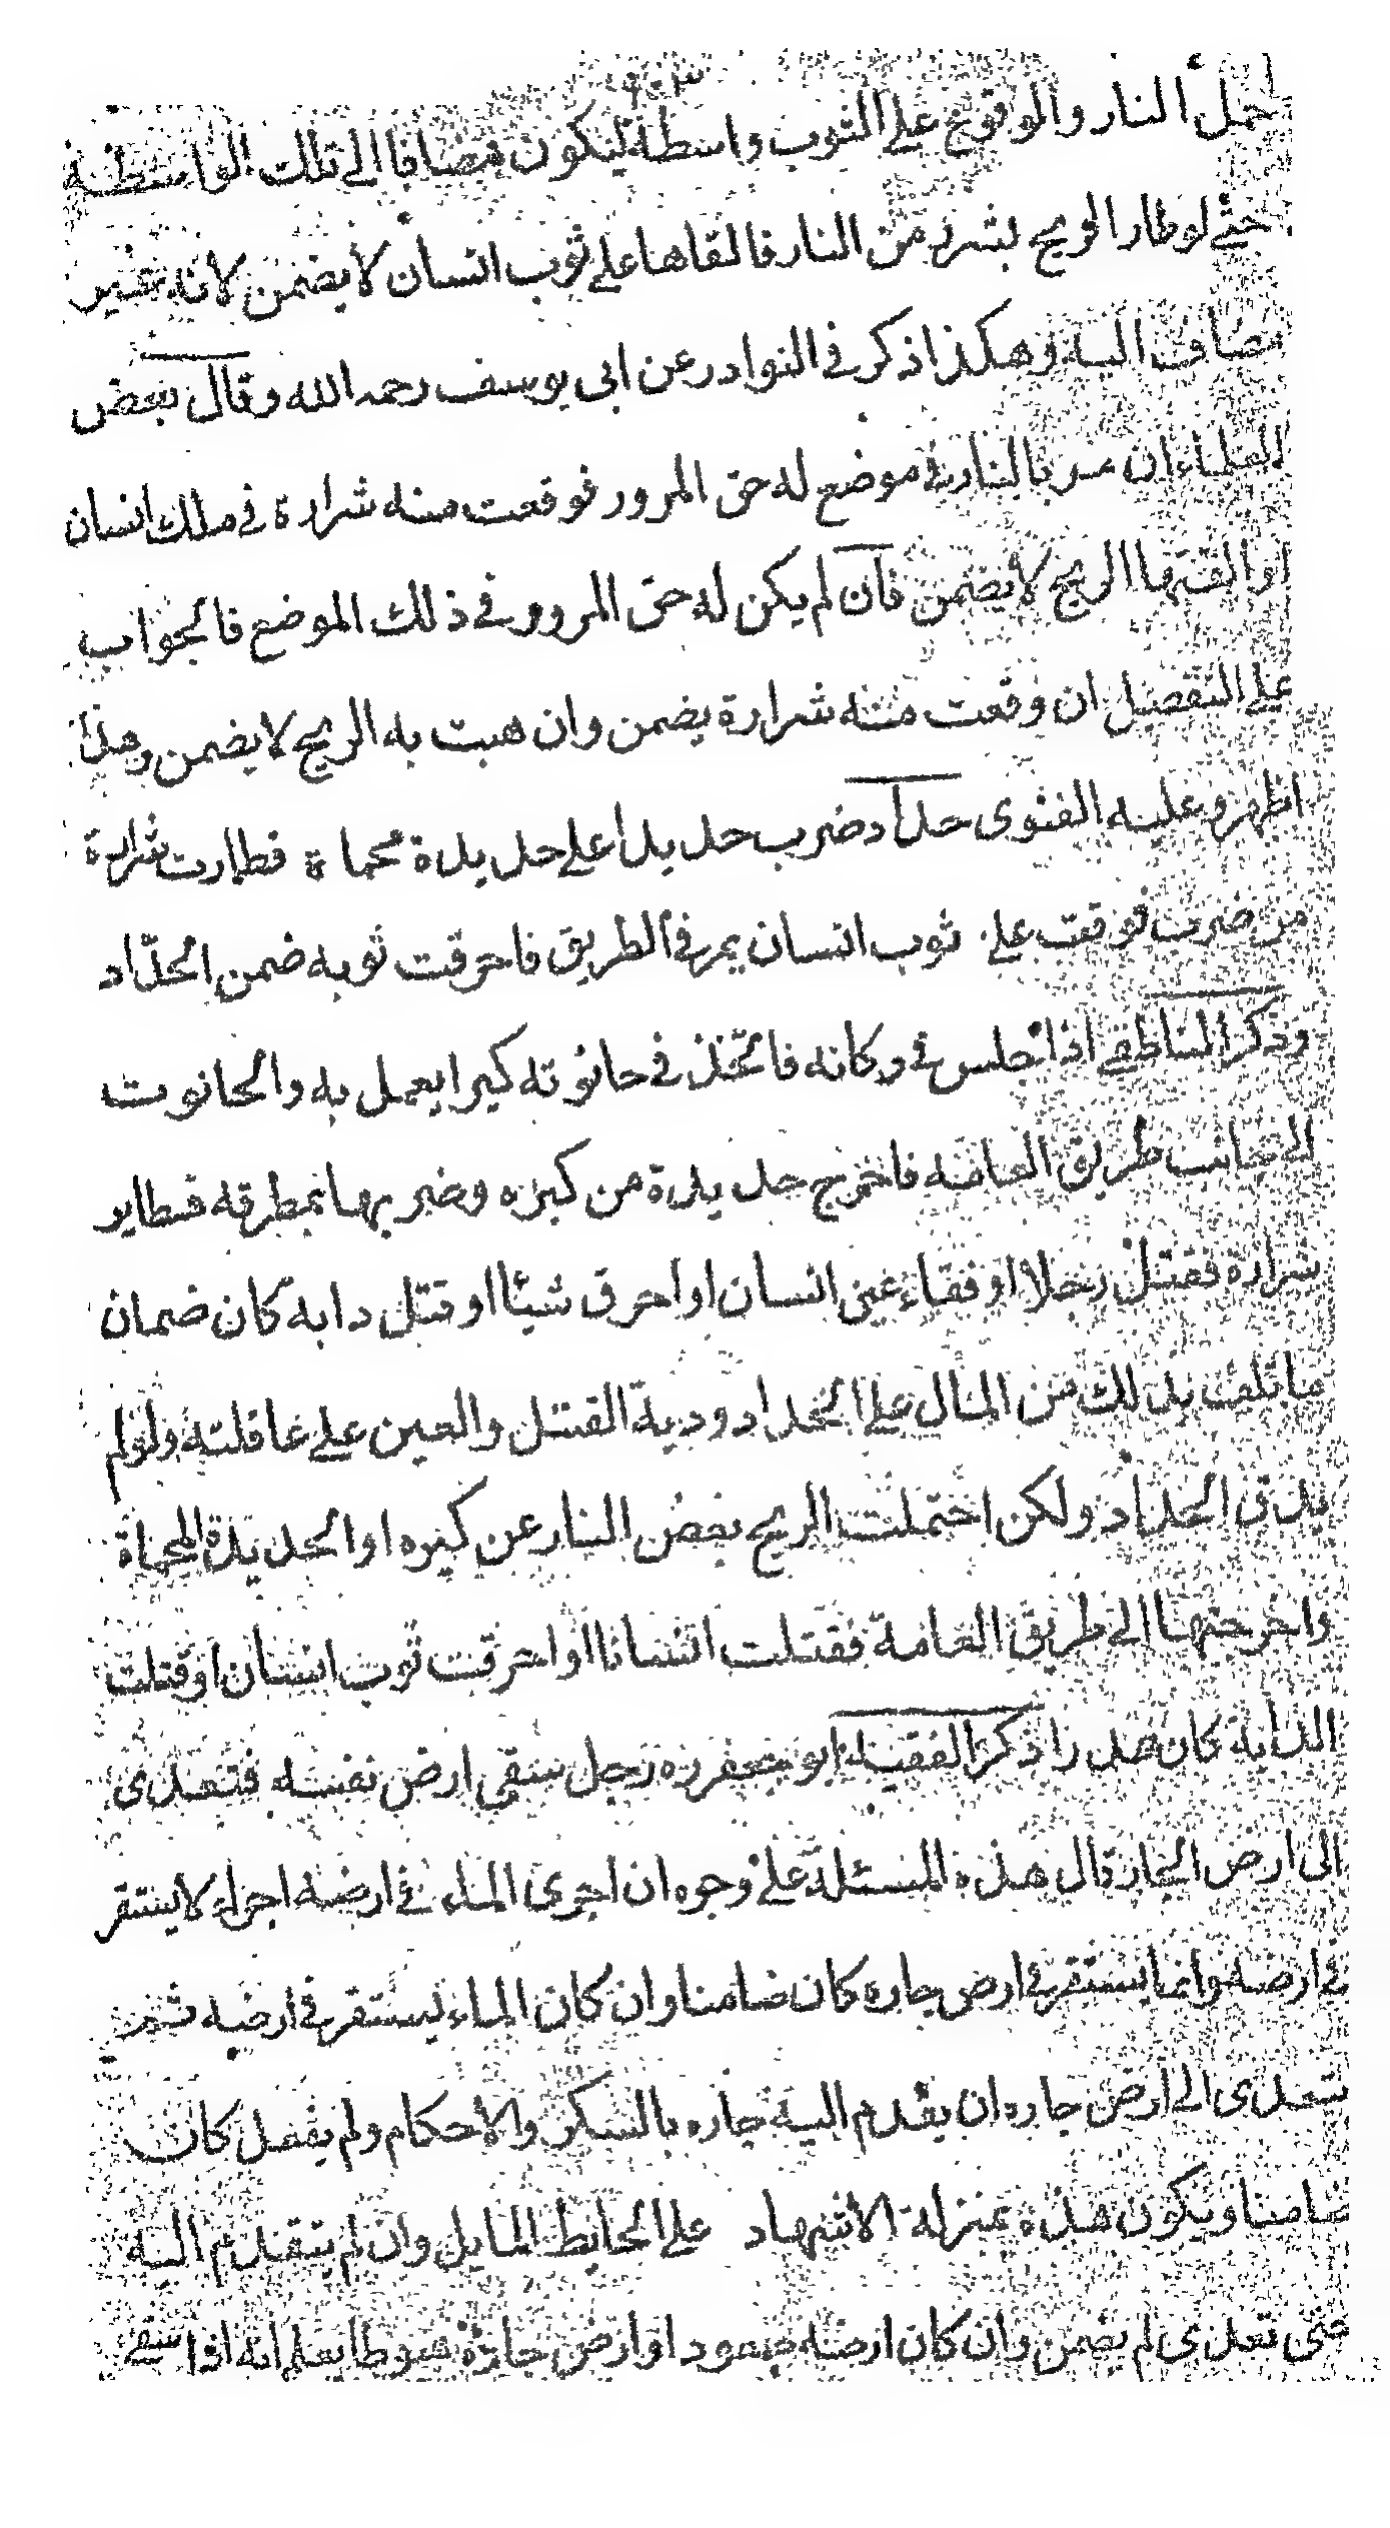 حمل النار والوقوع على الثوب واسطة ليكون مضافا الى تلك الواسطة
حتى لو طار الريح بشرر من النار فالقاها على ثوب انسان لا يضمن لانه غير
مضاف اليه وهكذا ذكر في النوادر عن ابى يوسف رحمه الله وقال بعض
العلماء ان مر بالنار في موضع له حق المرور فوقعت منه شرارة في ملك انسان
او القتها الريح لا يضمن فان لم يكن له حق المرور في ذلك الموضع فالجواب
على التفصيل ان وقعت منه شرارة يضمن وان هبت به الريح لا يضمن وهذا
اظهر وعليه الفتوى حداد ضرب حديدا على حديدة محماة فطارت شرارة
من ضربه فوقعت على ثوب انسان يمر في الطريق فاحرقت ثوبه ضمن الحدّاد
وذكر الناطفى اذا جلس في دكانه فاتخذ في حانوته كيرا يعمل به والحانوت
الى جانب طريق العامة فاخرج حديدة من كيره وضربها بمطرقه فتطاير
شرارة فقتل رجلا او فقاء عين انسان او احرق شيئا او قتل دابه كان ضمان
ما تلف بذلك من المال على الحداد ودية القتل والعين على عاقلته ولو لم
يدق الحداد ولكن احتملت الريح بعض النار عن كيره او الحديدة المحماة
واخرجتها الى طريق العامة فقتلت انسانا او احرقت ثوب انسان او قتلت
الدابة كان هدرا ذكر الفقيه ابو جعفر ره رجل سقى ارض نفسه فتعدى
الى ارض الجار قال هذه المسئلة على وجوه ان اجرى الماء في ارضه اجراء لا يستقر
في ارضه وانما يستقر في ارض جاره كان ضامنا وان كان الماء يستقر في ارضه ثم
يتعدى الى ارض جاره ان يقدم اليه جاره بالسكر والاحكام ولم يفعل كان
ضامنا ويكون هذه بمنزلة الاشهاد على الحايط المايل وان لم يتقدم اليه
حتى تعدى لم يضمن وان كان ارضه صعودا وارض جاره هبوطا يعلم انه اذا سقى